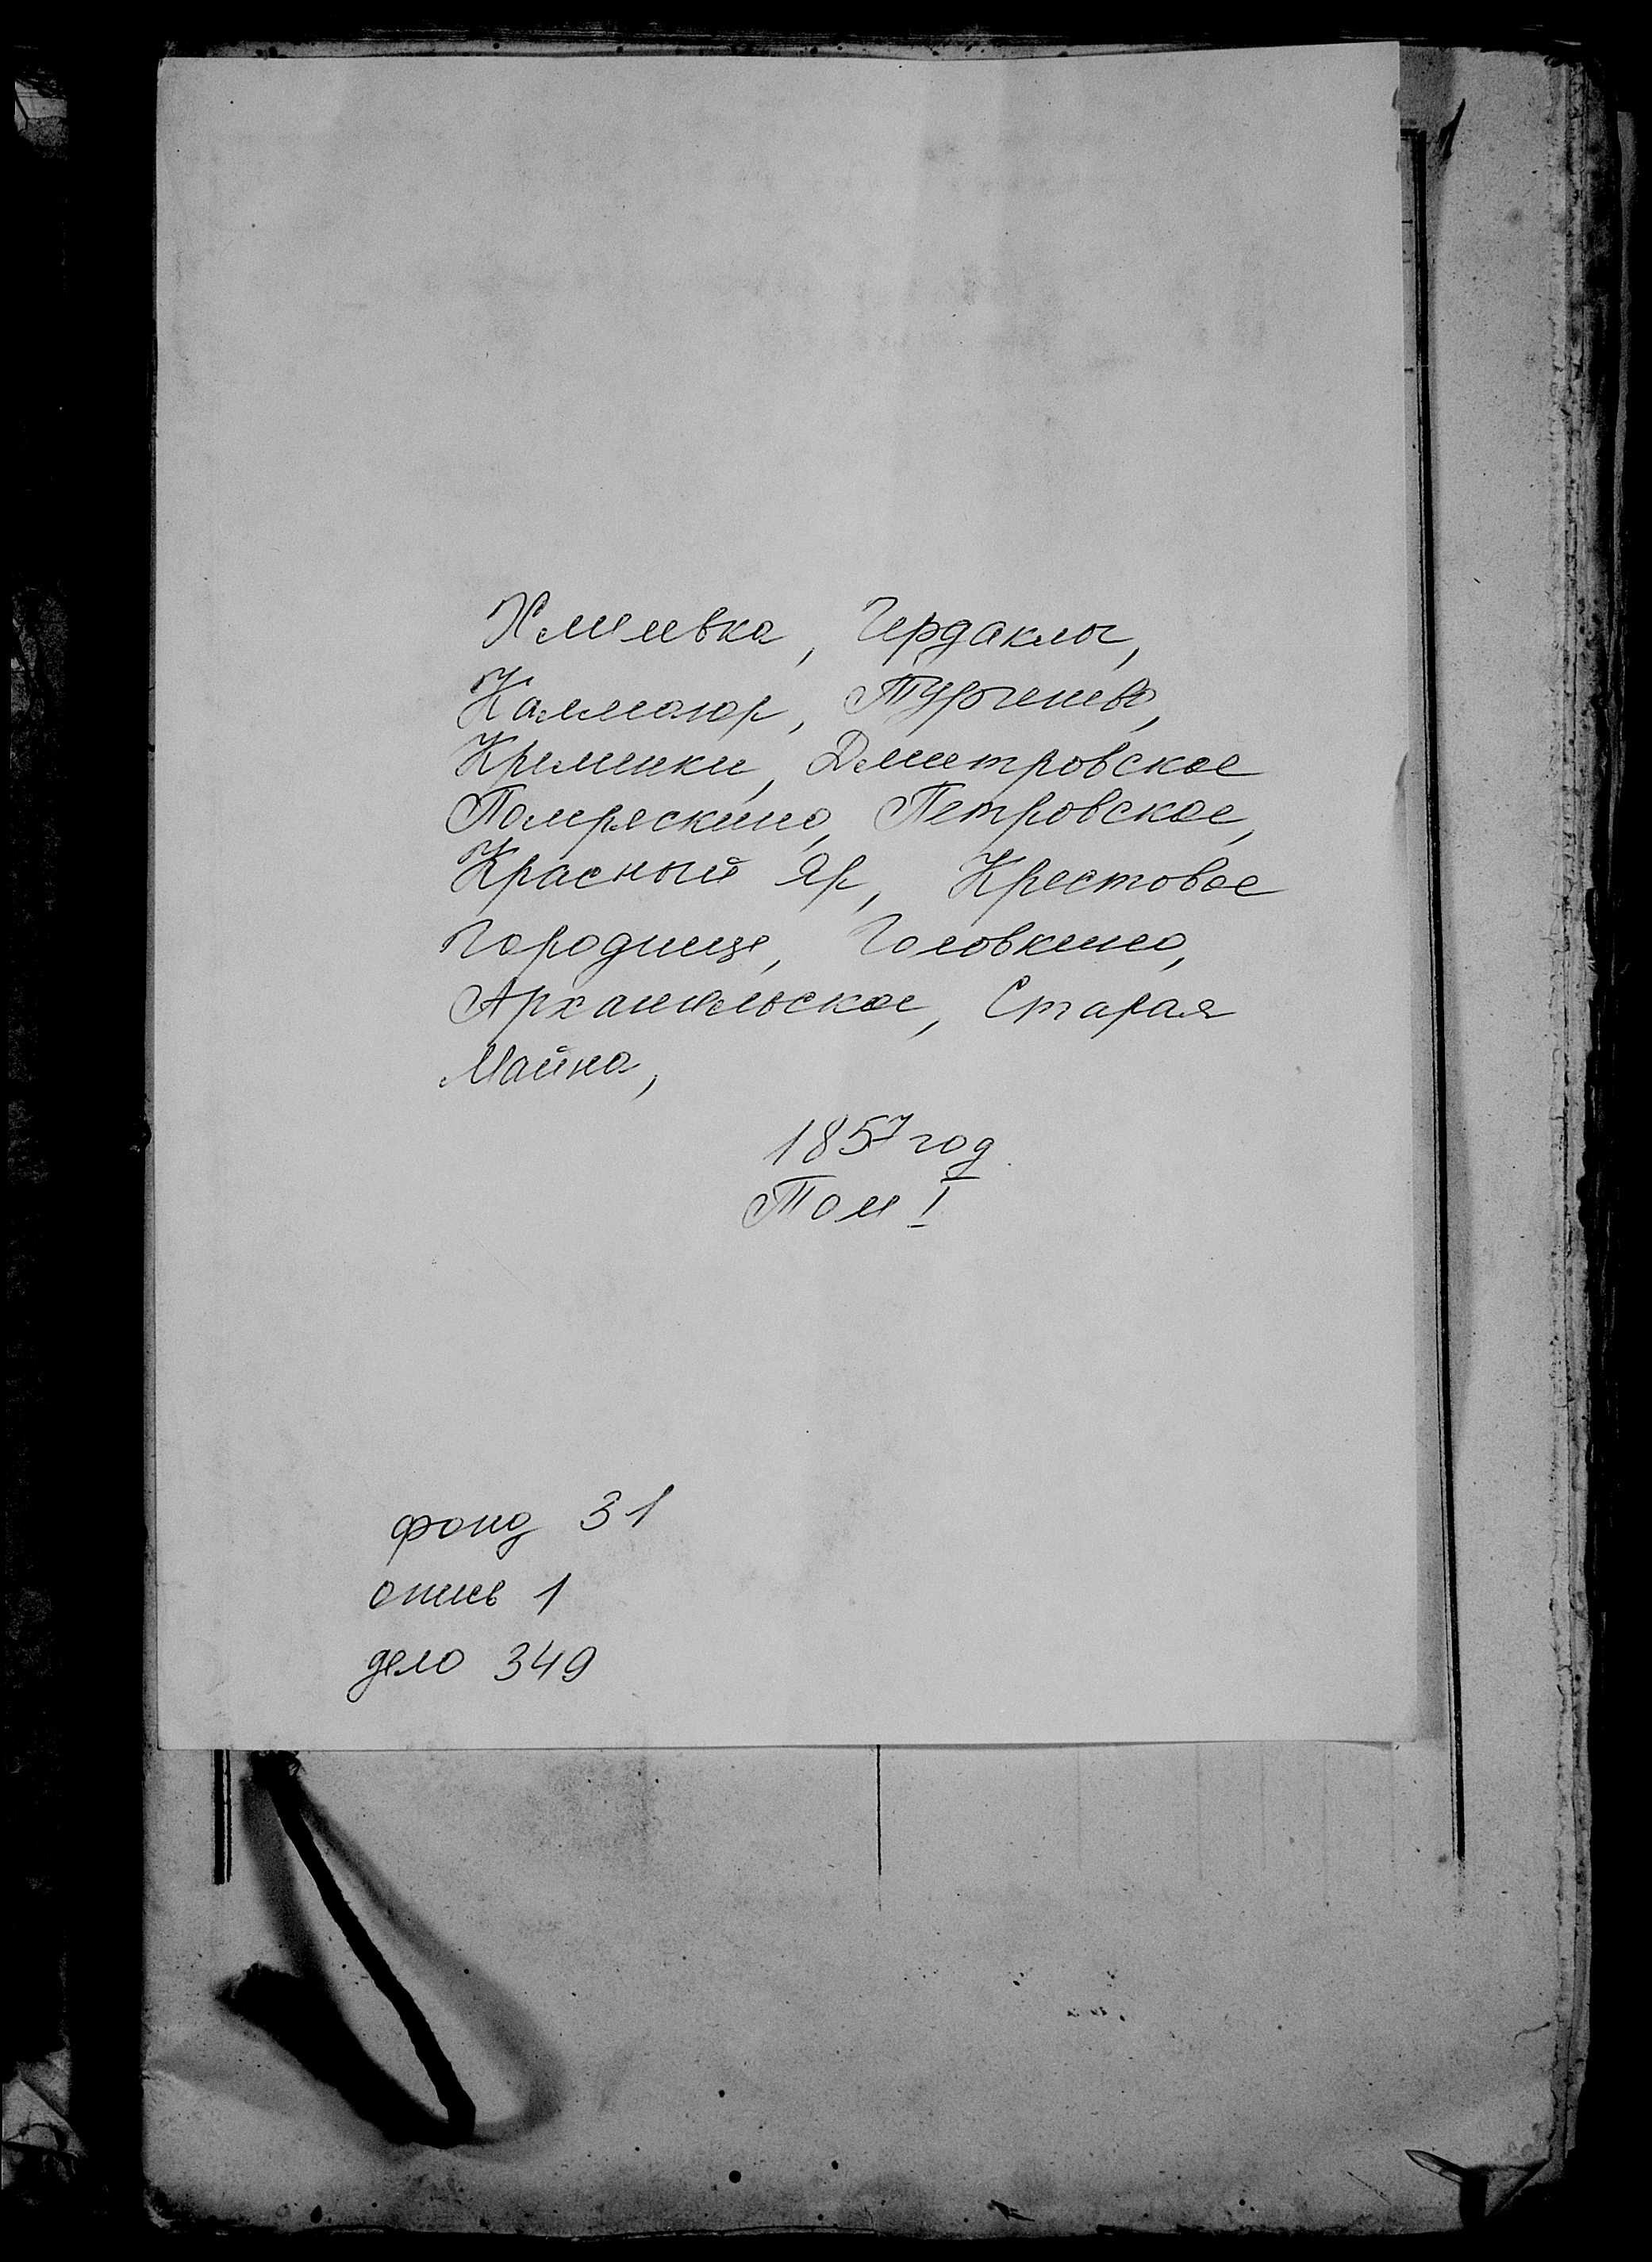 Хмелевка, Чердаклы,
Каммаюр, Тургенево,
Кременки, Дмитровское
Помряскино, Петровское,
Красный Яр, Крестовое
Городище, Головкино,
Архангельское, Старая
Майна,
1857 год
Том I
фонд 31
опись 1
дело 349